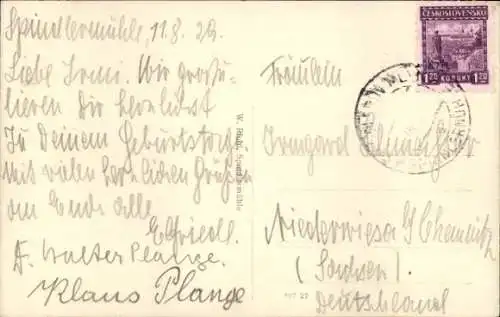 Spindlermühle, 11.8.29.
Liebe Irmi. Wir gratu-
lieren Dir herzlichst
Zu Deinem Geburtstage
Mit vielen herzlichen Grüßen
am Ende alle
Elfriede.
Walter Plange.
Klaus Plange
W. Bluh, Spindelmühle
ČESKOSLOVENSKO
1.20 KORUNY 1.20
Fräulein
Irmgard
Niederwiesa b/ Chemnitz
(Sachsen)
Deutschland
27